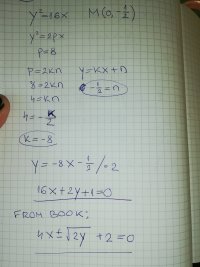 y² = 16x M(0, -1/2)
y² = 2px
p = 8
p = 2kn y = kx + n
8 = 2kn -1/2 = n
4 = kn
4 = -k/2
k = -8
y = -8x - 1/2 /·2
16x + 2y + 1 = 0
FROM BOOK:
4x ± √2y + 2 = 0